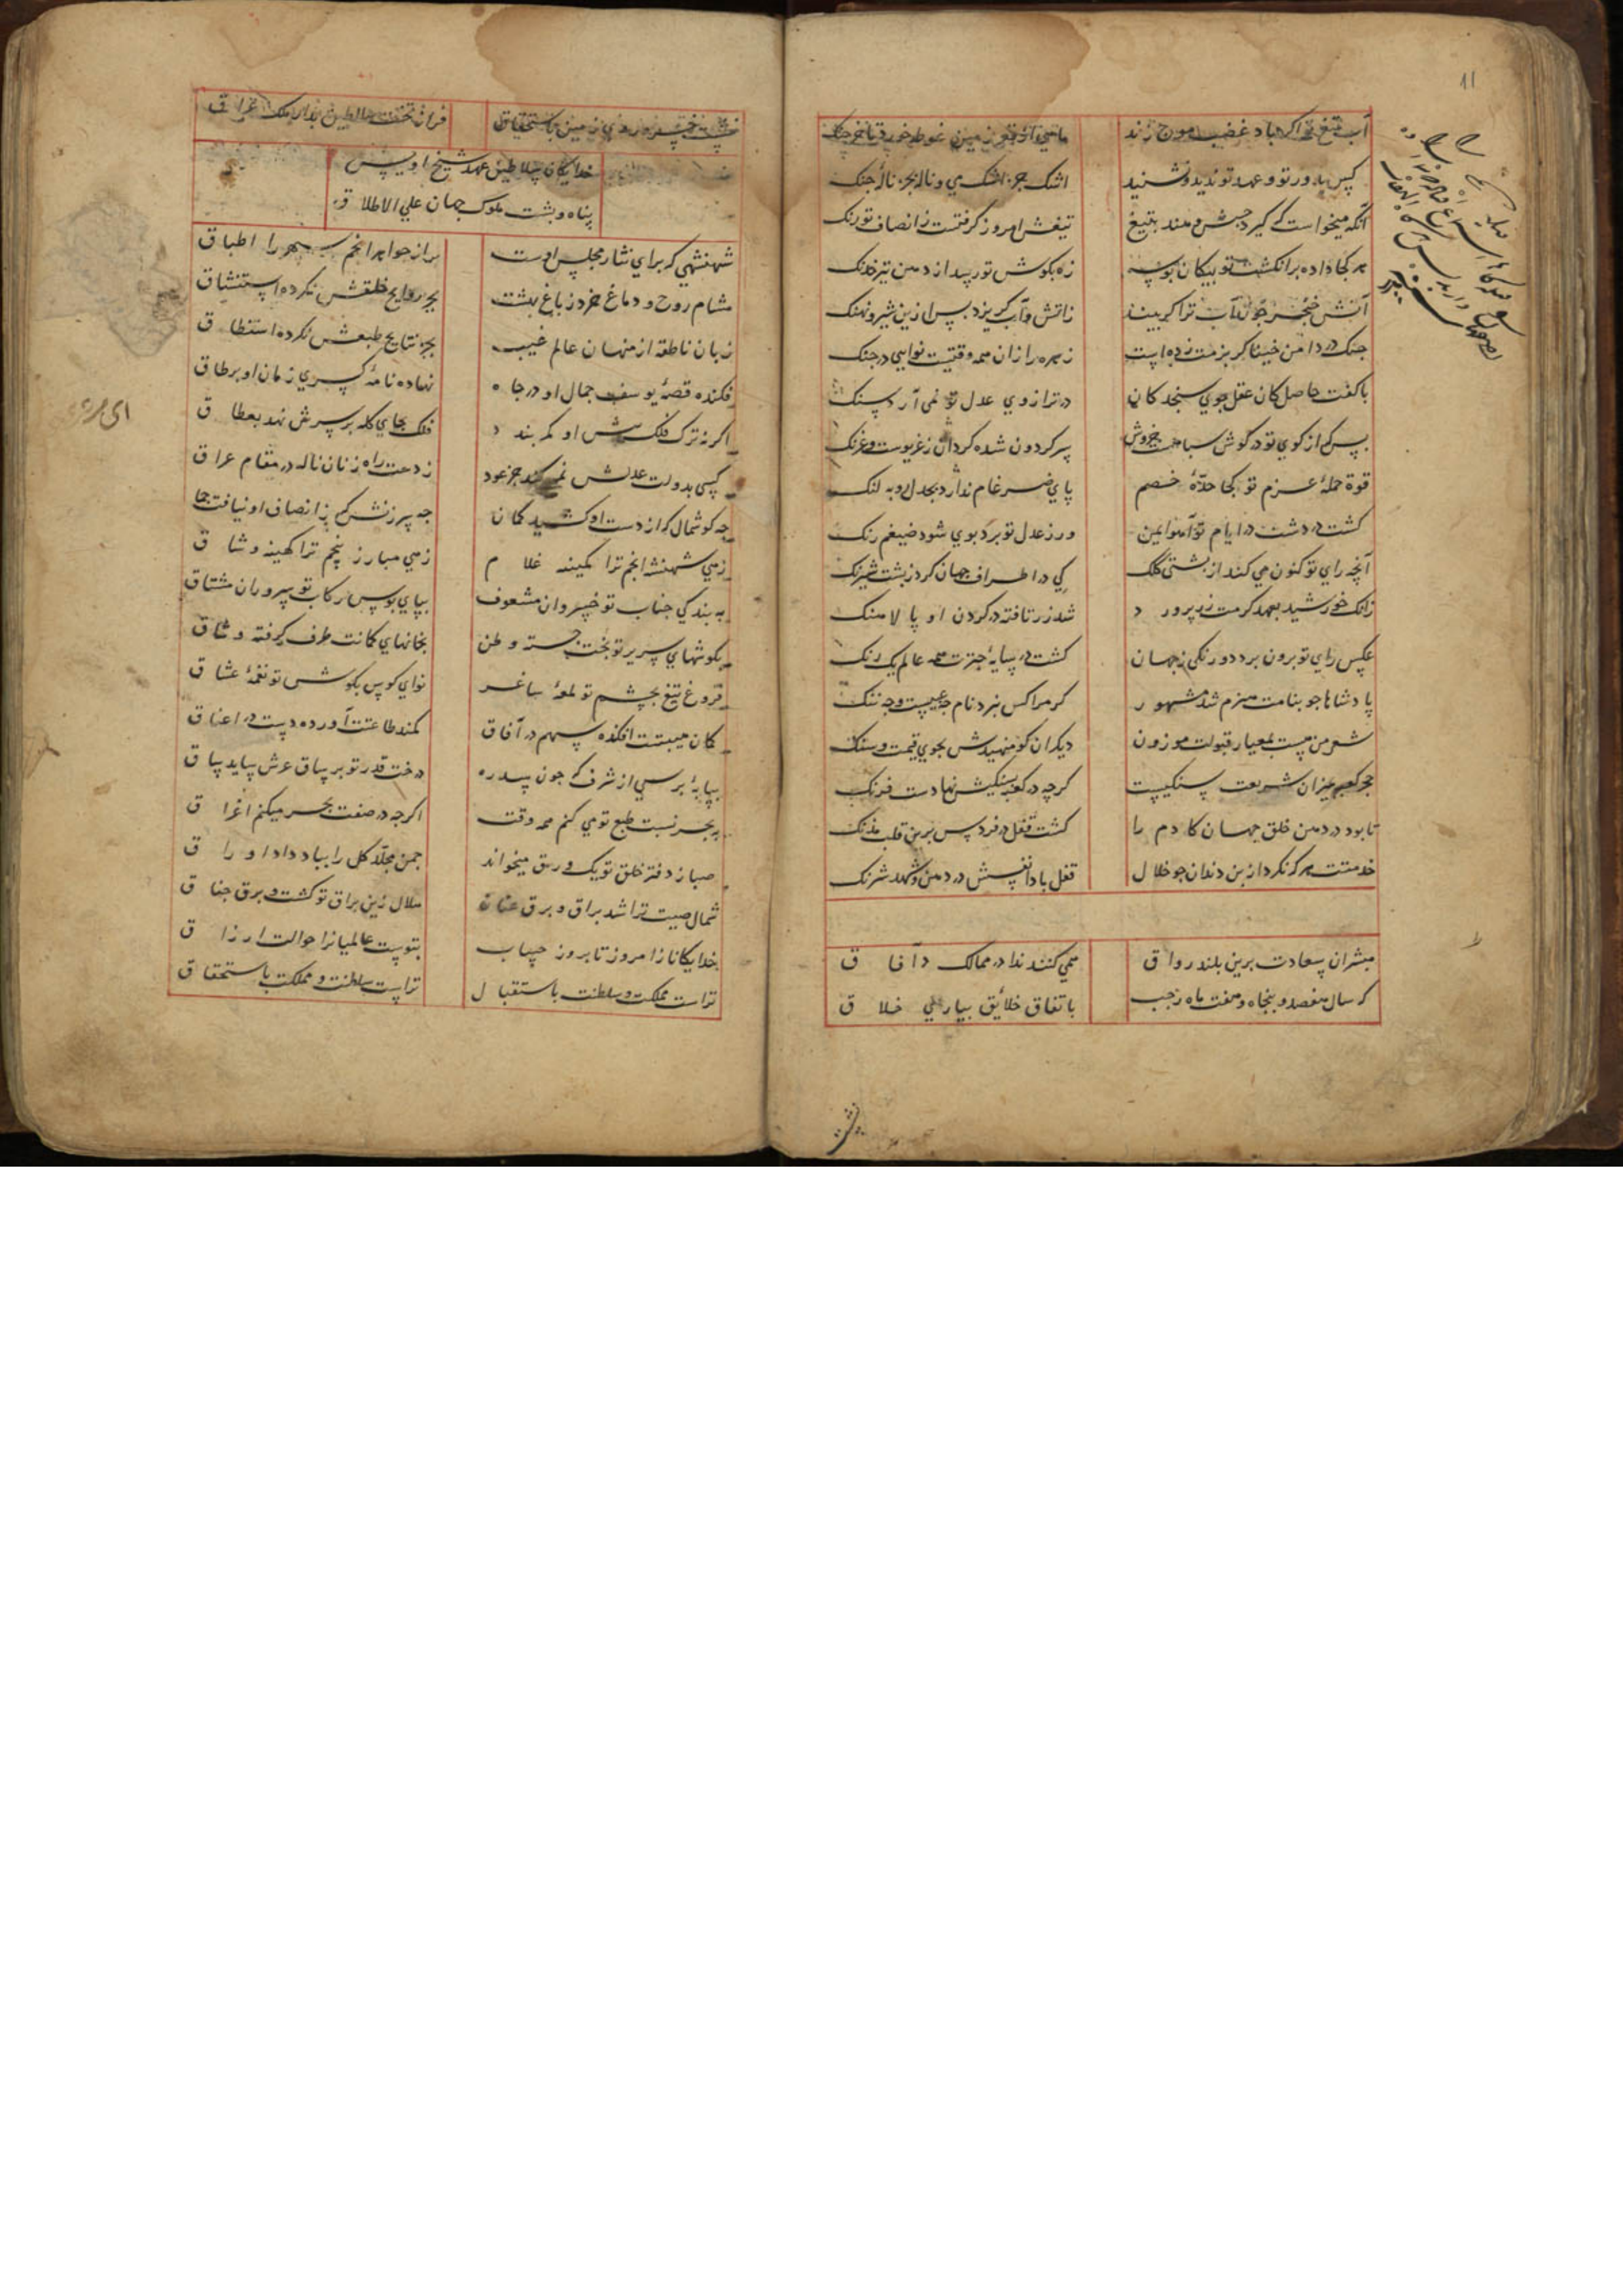 آب تیغ تو اکر باد غضب موج زند ماهی از قعر زمین غوطه خورد تا خرجنک
کس بدور تو و عهد تو ندید و نشنید اشک جز اشک می و ناله بجز ناله جنک
آنکه میخواست که کیرد حبش و هند بتیغ تیغش امروز کرفتست ز انصاف تو رنک
هر کجا داده بر انکشت تو پیکان بوسه زه بکوش تو رسید از دهن تیر خدنک
آتش خنجر جون آب ترا کر بیند ز آتش و آب کریزد پس ازین شیر و نهنک
جنک در دامن خنیاکر بزمت زده است زهره را زان همه وقتیست نوایی در جنک
با کفت حاصل کان عقل جوی سنجد کان در ترازوی عدل تو نمی آرد سنک
بس که از کوی تو در کوش سباعست خروش پر کردون شده کردان ز غریوست و غرنک
قوة حمله عزم تو کجا حده خصم پای ضرغام ندارد بجدل روبه لنک
کشت در دشت در ایام تو آهو ایمن ور ز عدل تو برد بوی شود ضیغم رنک
آنچه رای تو کنون می کند از پشتی کلک کی در اطراف جهان کرد ز پشت شبرنک
زانک خورشید بعهد کرمت زر پرورد شد زر تافته در کردن او پالاهنک
عکس رای تو برون برد دو رنکی ز جهان کشت در سایه جترت همه عالم یک رنک
پادشاها جو بنامت هنرم شد مشهور کر مرا کس نبرد نام جه عیبست و جه ننک
شعر من چست بمعیار قبولت موزون دیکران کو منهیدش بجوی قیمت و سنک
حجر کعبه بمیزان شریعت سنکیست کرچه در کعبه بسنکیش نهادست فرنک
تا بود در دهن خلق جهان کادم را کشت قفل در فردوس برین قلب مذنک
خدمتت هر که نکرد از بن دندان جو خلال قفل بادا نفسش در دهن و شهد شرنک
مبشران سعادت برین بلند رواق همی کنند ندا در ممالک و آفاق
که سال هفصد و پنجاه و هفت ماه رجب باتفاق خلائق بیاری خلاق
نشست خسرو روی زمین باستحقاق فراز تخت سلاطین بدار ملک عراق
خدایکان سلاطین عهد شیخ اویس
پناه و پشت ملوک جهان علی الاطلاق
شهنشهی که برای نثار مجلس اوست پر از جواهر انجم سپهر را اطباق
مشام روح و دماغ خرد ز باغ بهشت بجز روایح خلقش نکرده استنشاق
زبان ناطقه از منهیان عالم غیب بجز نتایج طبعش نکرده استنطاق
فکنده قصه یوسف جمال او در جاه نهاده نامه کسری زمان او بر طاق
اکر نه ترک فلک پیش او کمر بندد فلک بجای کله بر سرش نهد بغطاق
کسی بدولت عدلش نمی کند جز عود ز دست راه زنان ناله در مقام عراق
جه کوشمال که از دست او کشید کمان جه سرزنش که ز انصاف او نیافت جماق
زهی شهنشه انجم ترا کمینه غلام زهی مبارز پنجم ترا کهینه وشاق
به بندکی جناب تو خسروان مشعوف بپای بوس رکاب تو سروران مشتاق
بکوشهای سریر تو بخت جسته وطن بخانهای کمانت ظفر کرفته وثاق
فروغ تیغ بچشم تو لمعه ساغر نوای کوس بکوش تو نغمه عشاق
کمان هیبتت افکنده سهم در آفاق کمند طاعتت آورده دست در اعناق
بپایه برسی از شرف که جون سدره درخت قدر تو بر ساق عرش ساید ساق
به بحر نسبت طبع تو می کنم همه وقت اکرجه در صفت بحر میکنم اغراق
صبا ز دفتر خلق تو یک ورق میخواند جمن مجلد کل را بباد داد اوراق
شمال صیت ترا شد براق و برق عنان هلال زین براق تو کشت و برق جناق
خدایکانا ز امروز تا بروز حساب بتوست عالمیانرا حوالت ارزاق
تراست مملکت و سلطنت باستقبال تراست سلطنت و مملکت باستحقاق